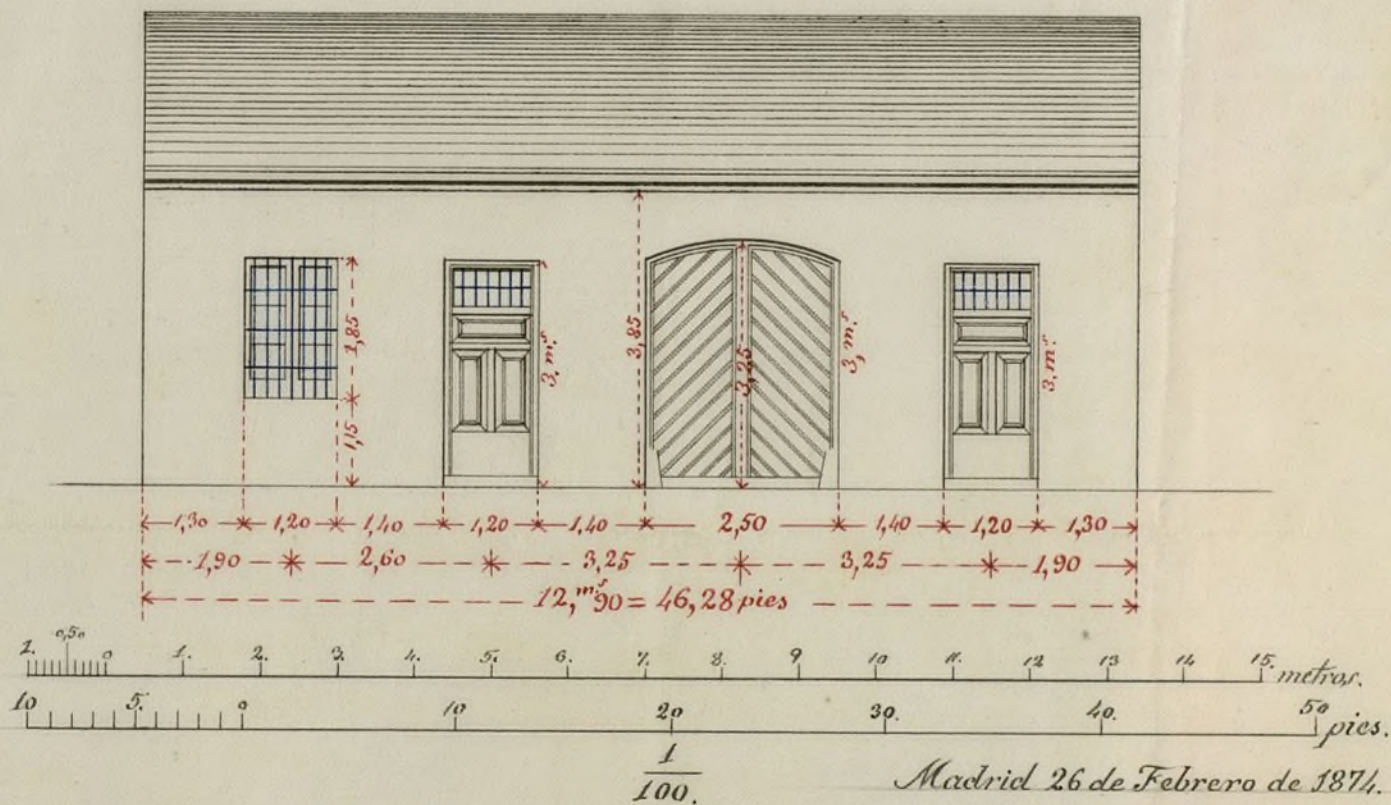 3,85
1,85
3, m.s
3,25
3, m.s
3, m.s
1,15
1,30 1,20 1,40 1,20 1,40 2,50 1,40 1,20 1,30
1,90 2,60 3,25 3,25 1,90
12,m.s90 = 46,28 pies
1. 0,50 0 1. 2. 3. 4. 5. 6. 7. 8. 9 10 11. 12 13 14 15. metros.
10 5. 0 10 20 30. 40. 50 pies.
1
100.
Madrid 26 de Febrero de 1874.